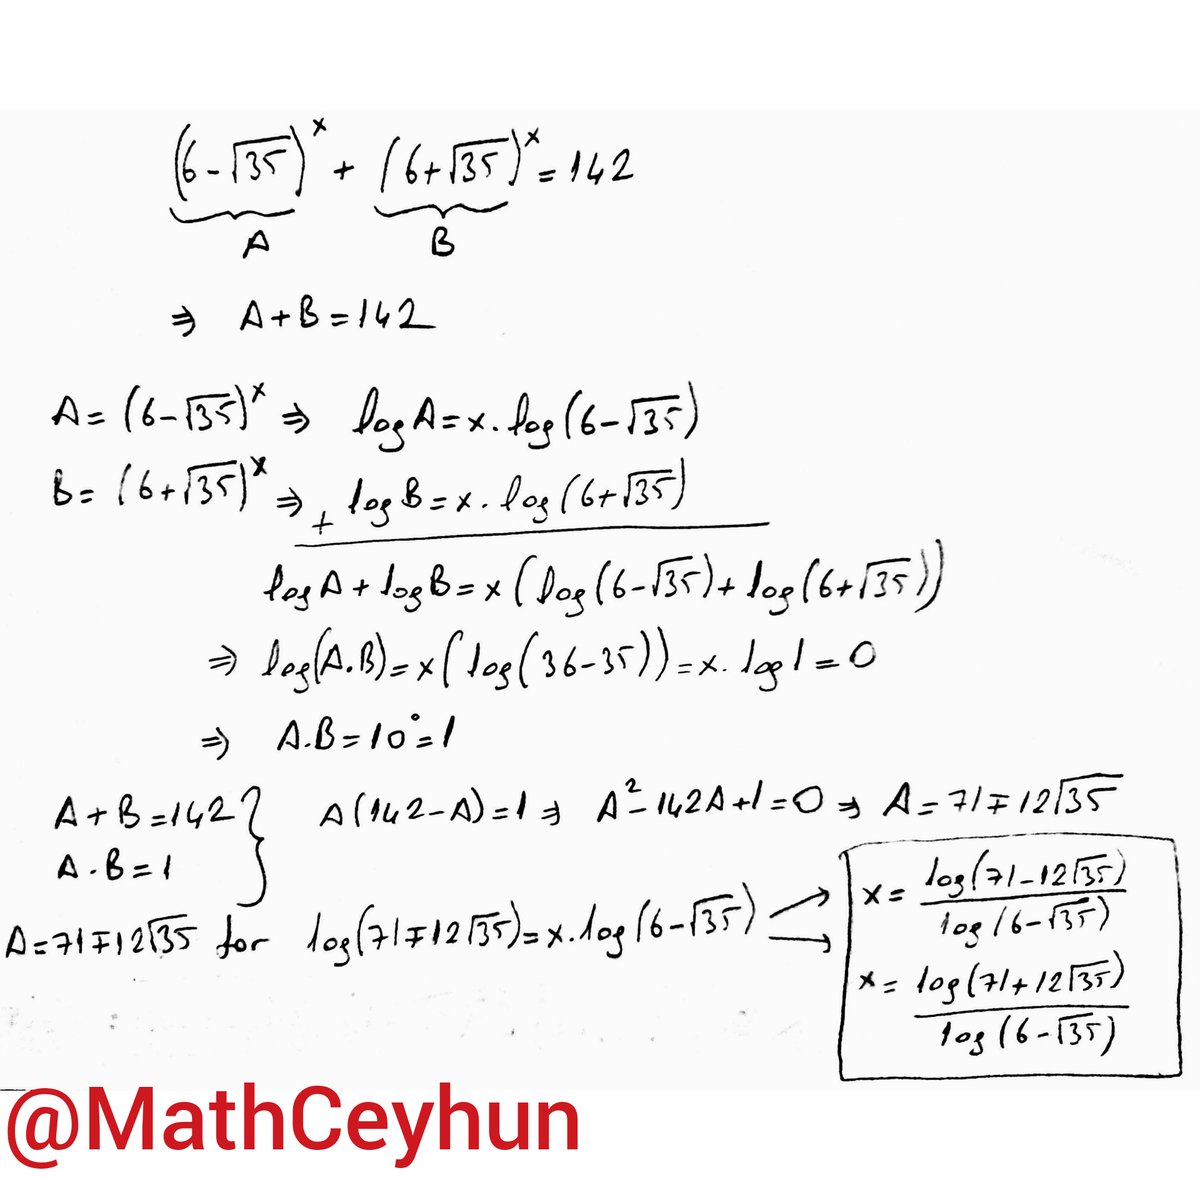 (6-√35)^x + (6+√35)^x = 142
A B
⇒ A+B=142
A= (6-√35)^x ⇒ log A = x . log (6-√35)
B= (6+√35)^x ⇒ + log B = x . log (6+√35)
log A + log B = x (log (6-√35) + log (6+√35))
⇒ log(A.B) = x (log (36-35)) = x . log 1 = 0
⇒ A.B = 10° = 1
A+B=142 } A(142-A)=1 ⇒ A²-142A+1=0 ⇒ A=71∓12√35
A.B=1
A=71∓12√35 for log(71∓12√35) = x.log (6-√35)
x = log(71-12√35) / log (6-√35)
x = log(71+12√35) / log (6-√35)
@MathCeyhun